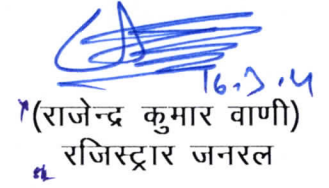 16.3.14
(राजेन्द्र कुमार वाणी)
रजिस्ट्रार जनरल